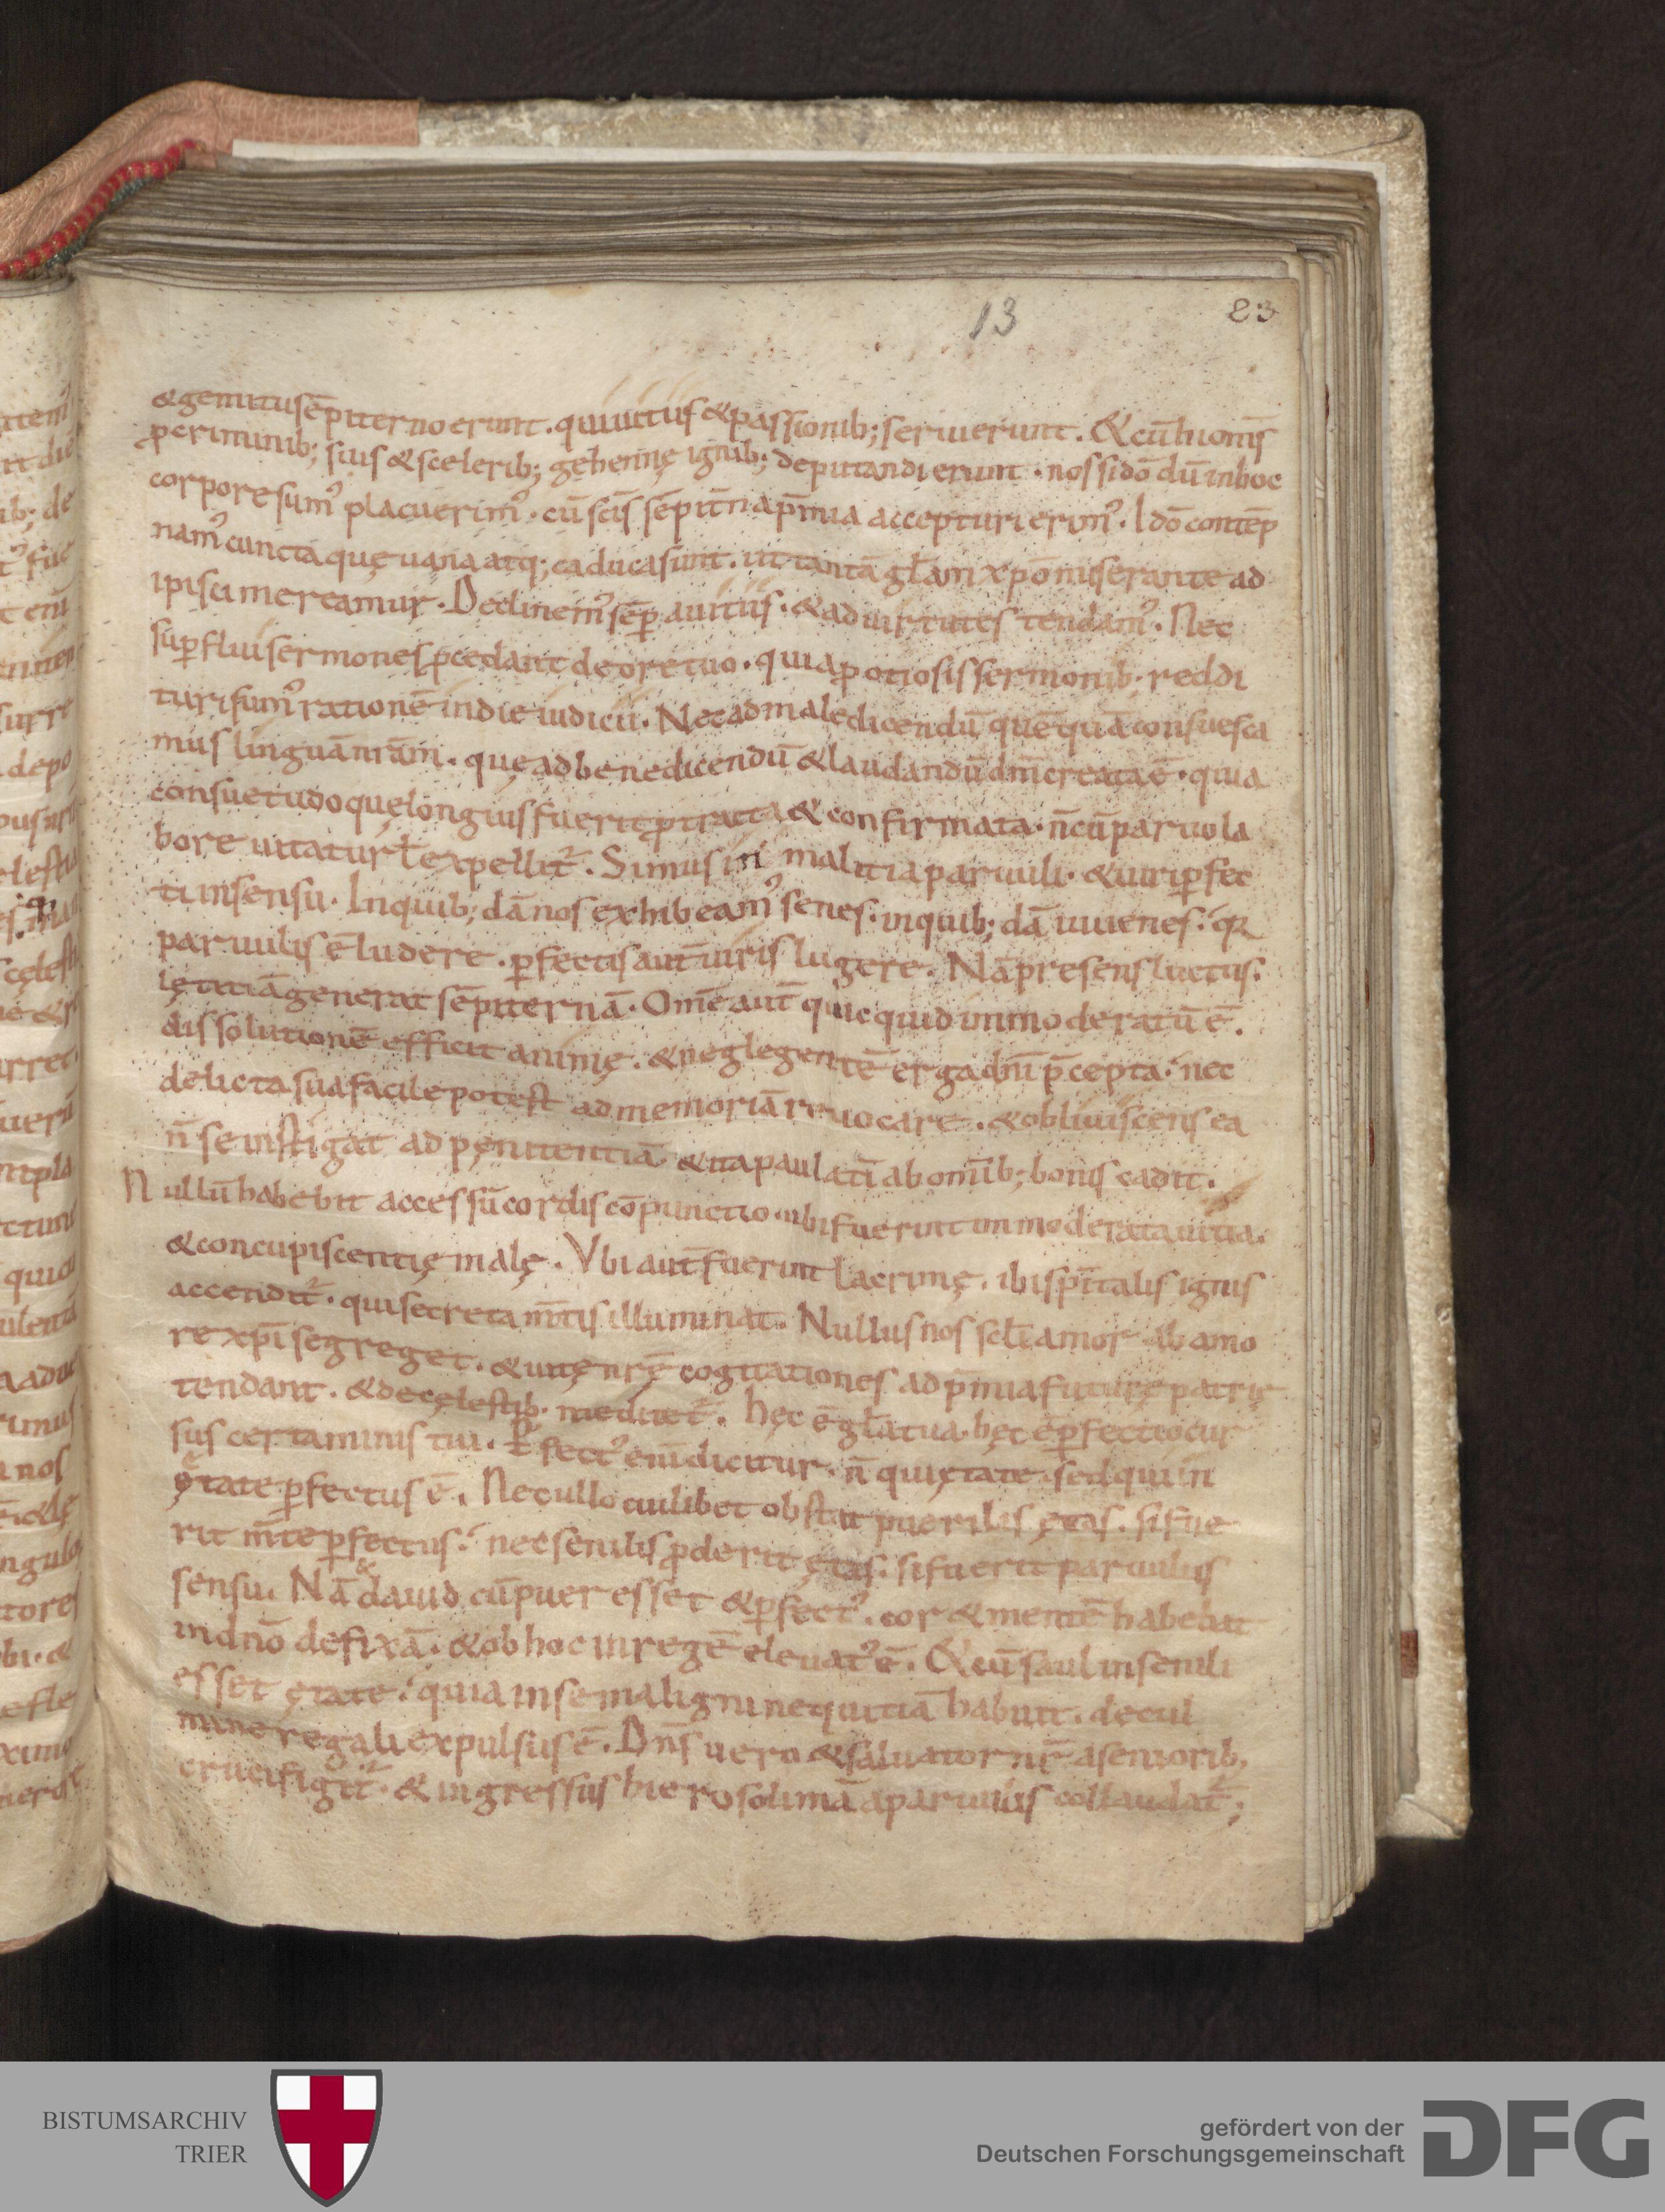 13
23
& gemitu sēpiterno erunt. qui uitiis & passionib; seruierunt. & cū h uōnis
p criminib; suis & scelerib; gehennę ignib; deputandi erunt. nos si dō dū in hoc
corpore sumꝰ placuerimꝰ. cū scīs sēpit̄na p̄mia accepturi erimꝰ. Idō contēp
namꝰ cuncta quę uana atq; caduca sunt. ut tantā gl̄am xp̄o miserante ad
ipisci mereamur. Declinemꝰ sēp a uitiis. & ad uirtutes tendamꝰ. Nec
supflui sermones pcedant de ore tuo. quia p otiosis sermonib; reddi
turi sumꝰ rationē in die iudicii. Nec ad maledicendū quēquā consuesca
mus linguā nr̄am. quę ad benedicendū & laudandū dm̄ creata ē. quia
consuetudo quę longius fuerit ptracta & confirmata. n̄ cū paruo la
bore uitatur l̄ expellit̉. Simus in malitia paruuli. & uiri pfec
ti in sensu. In quib; dā nos exhibeamꝰ senes. in quib; dā iuuenes. qꝛ
paruulis ē ludere. pfectis aut̄ uiris lugere. Nā presens luctus.
lętitiā generat sēpiternā. Om̄e aut̄ quicquid immoderatū ē.
dissolutionē efficit animę. & neglegentē erga dn̄i p̄cepta. nec
delicta sua facile potest ad memoriā reuocare. & obliuiscens ea
n̄ se instigat ad pęnitentiā. & ita paulatī ab om̄ib; bonis cadit.
Nullū habebit accessū cordis cōpunctio. ubi fuerint immoderata uitia.
& concupiscentię malę. Vbi aut̄ fuerint lacrimę. ibi spīr̄talis ignis
accendit̉. qui secreta m̄tis illuminat. Nullus nos sc̄li amor ab amo
re xp̄i segreget. & uitę nr̄ę cogitationes ad p̄mia futurę patrię
tendant. & de cęlestib. mediet̉. hęc ē gl̄a tua. hęc ē pfectio cur
sus certaminis tui. Pfectꝰ enī dicitur. n̄ qui ętate. sed qui in
ętate pfectus ē. Nec ullo cuilibet obstat puerilis ętas. si fue
rit m̄te pfectus. nec senilis pderit ętas. si fuerit paruulus
sensu. Nā & dauid cū puer esset & pfectꝰ. cor & mentē habebat
in dn̄o defixā. & ob hoc in regē eleuatꝰ ē. & cū saul in senili
esset ętate. quia in se maligni nequitiā habuit. de cul
mine regali expulsus ē. Dn̄s uero & saluator nr̄ a seniorib;
crucifigit̉. & ingressus hierosolimā a paruulis collaudat̉;
BISTUMSARCHIV
TRIER
gefördert von der
Deutschen Forschungsgemeinschaft
DFG